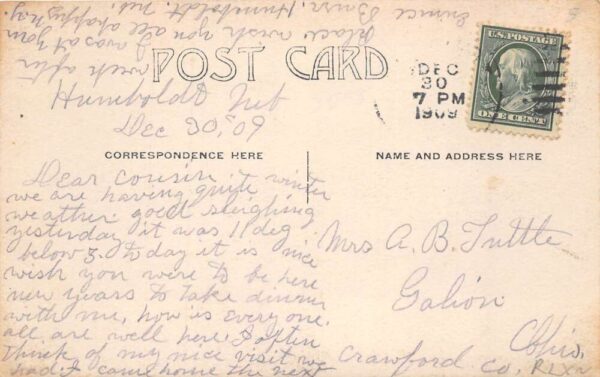 POST CARD
U.S. POSTAGE
ONE CENT
DEC
30
7 PM
1909
Humboldt Neb
Dec 30, 09
CORRESPONDENCE HERE
NAME AND ADDRESS HERE
Dear cousin
we are having quite winter
weather. good sleighing
yesterday it was 11 deg
below 3. today it is nice
wish you were to be here
new years to take dinner
with me, how is every one.
all are well here. I often
think of my nice visit we
had. I came home the next
week after
I was at your
place wish you all a happy N.Y.
Eunice Burr, Humboldt. Neb.
Mrs A. B. Tuttle
Galion
Ohio.
Crawford Co.